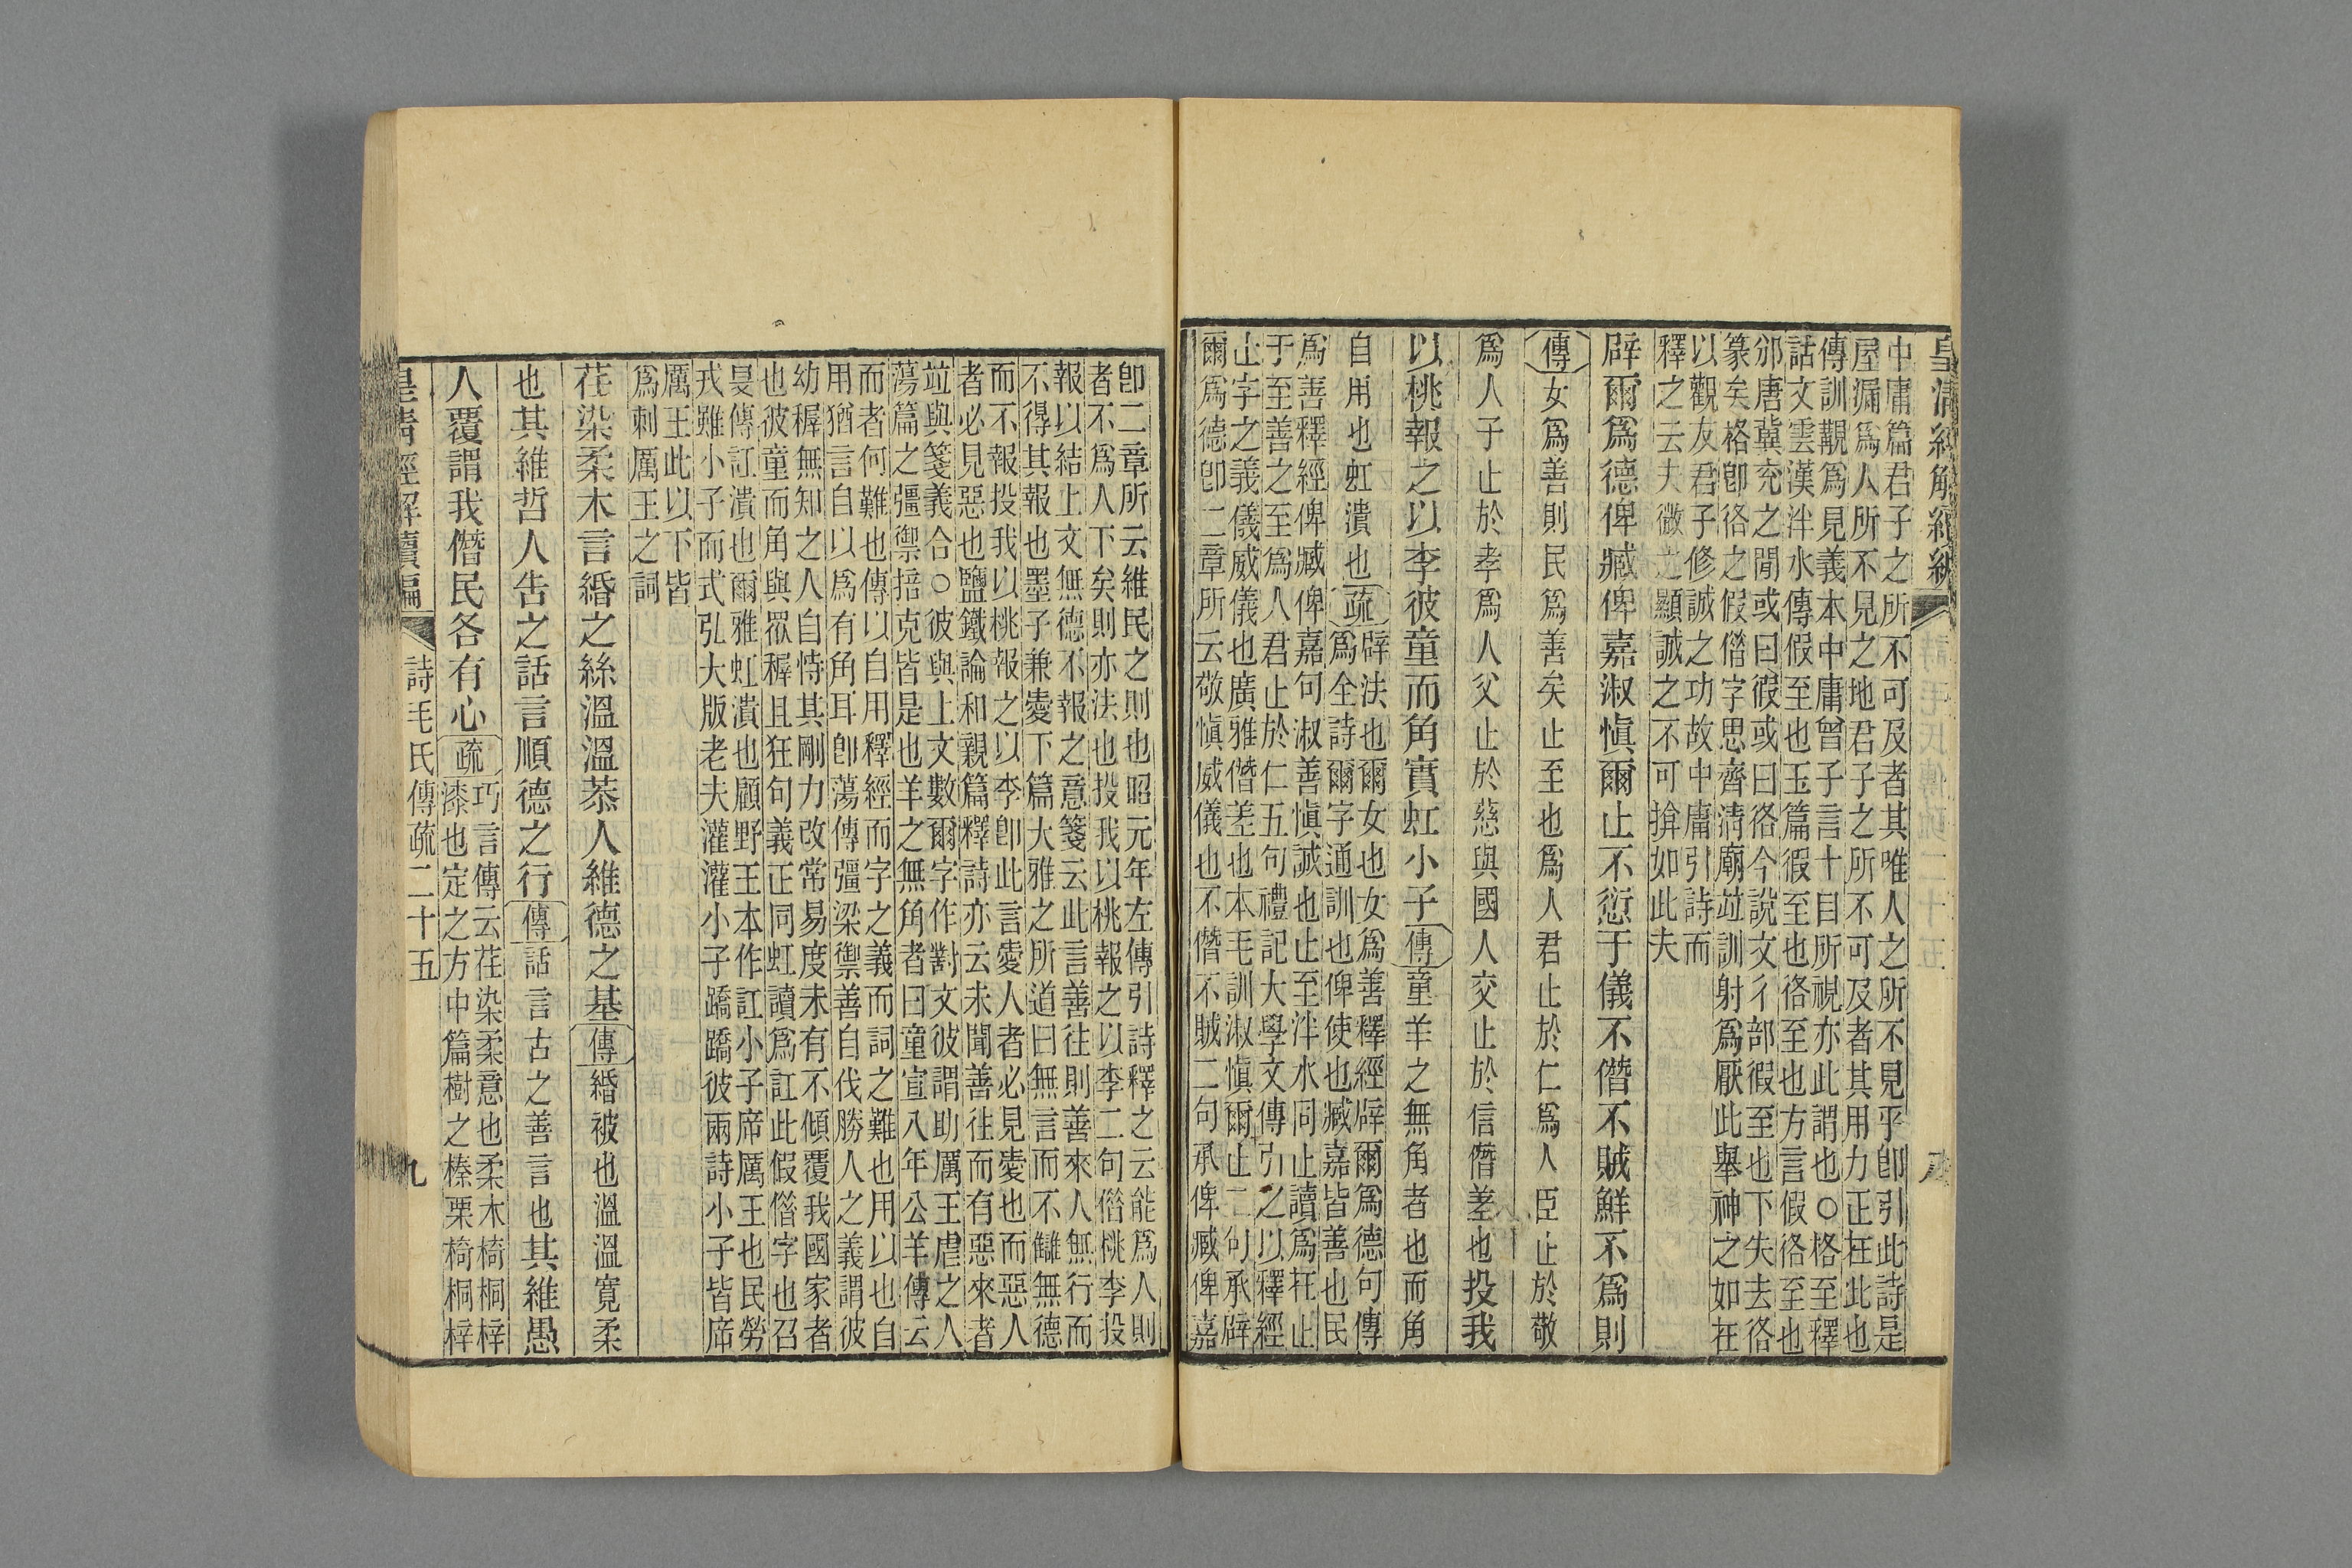 皇清經解續編
中庸篇君子之所不可及者其唯人之所不見乎卽引此詩是
屋漏爲人所不見之地君子之所不可及者其用力正在此也
傳訓觀爲見義本中庸曾子言十目所視亦此謂也○格至釋
詁文雲漢泮水傳假至也玉篇徦至也㣟至也方言假㣟至也
邠唐冀兖之閒或曰徦或曰㣟今說文彳部徦至也下失去㣟
篆矣格卽㣟之假借字思齊淸廟竝訓射爲厭此舉神之如在
以觀友君子修誠之功故中庸引詩而
釋之云夫微之顯誠之不可揜如此夫
辟爾爲德俾臧俾嘉淑愼爾止不愆于儀不僭不賊鮮不爲則
傳女爲善則民爲善矣止至也爲人君止於仁爲人臣止於敬
爲人子止於孝爲人父止於慈與國人交止於信僭差也投我
以桃報之以李彼童而角實虹小子傳童羊之無角者也而角
自用也虹潰也疏辟法也爾女也女爲善釋經辟爾爲德句傳
爲全詩爾字通訓也俾使也臧嘉皆善也民
爲善釋經俾臧俾嘉句淑善愼誠也止至泮水同止讀爲在止
于至善之至爲人君止於仁五句禮記大學文傳引之以釋經
止字之義儀威儀也廣雅僭差也本毛訓淑愼爾止二句承辟
爾爲德卽二章所云敬愼威儀也不僭不賊二句承俾臧俾嘉
卽二章所云維民之則也昭元年左傳引詩釋之云能爲人則
者不爲人下矣則亦法也投我以桃報之以李二句借桃李投
報以結上文無德不報之意箋云此言善往則善來人無行而
不得其報也墨子兼愛下篇大雅之所道曰無言而不讎無德
而不報投我以桃報之以李卽此言愛人者必見愛也而惡人
者必見惡也鹽鐵論和親篇釋詩亦云未聞善往而有惡來者
竝與箋義合○彼與上文數爾字作對文彼謂助厲王虐之人
蕩篇之彊禦掊克皆是也羊之無角者曰童宣八年公羊傳云
而者何難也傳以自用釋經而字之義而詞之難也用以也自
用猶言自以爲有角耳卽蕩傳彊梁禦善自伐勝人之義謂彼
幼穉無知之人自恃其剛力改常易度未有不傾覆我國家者
也彼童而角與眾穉且狂句義正同虹讀爲訌此假借字也召
旻傳訌潰也爾雅虹潰也顧野王本作訌小子席厲王也民勞
戎雖小子而式弘大版老夫灌灌小子蹻蹻彼兩詩小子皆席
厲王此以下皆
爲刺厲王之詞
荏染柔木言緡之絲溫溫恭人維德之基傳緡被也溫溫寬柔
也其維哲人告之話言順德之行傳話言古之善言也其維愚
人覆謂我僭民各有心疏巧言傳云荏染柔意也柔木椅桐梓
漆也定之方中篇樹之榛栗椅桐梓
皇清經解續編 詩毛氏傳疏二十五 九